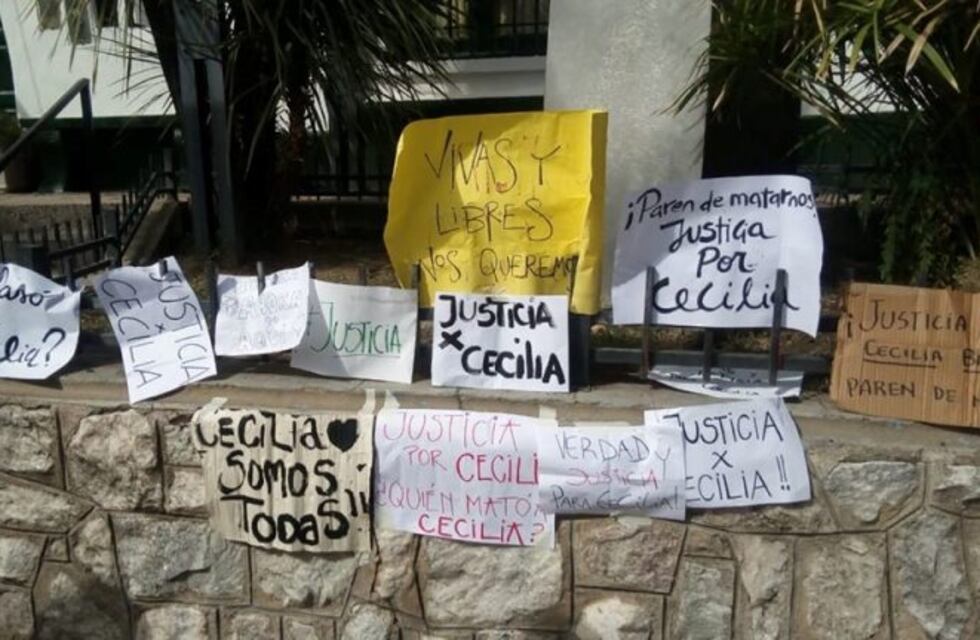 VIVAS Y
LIBRES
NOS QUEREMO
¡Paren de matarnos!
Justicia
Por
Cecilia
asó
lia?
JUSTICIA
X
CECILIA
JUSTICIA
JUSTICIA
x
CECILIA
¡JUSTICIA
CECILIA B
PAREN DE
CECILIA
SOMOS
TODAS!!
JUSTICIA
POR CECILI
¿QUIÉN MATÓ A
CECILIA?
VERDAD Y
JUSTICIA
PARA CECILIA!
JUSTICIA
X
ECILIA!!